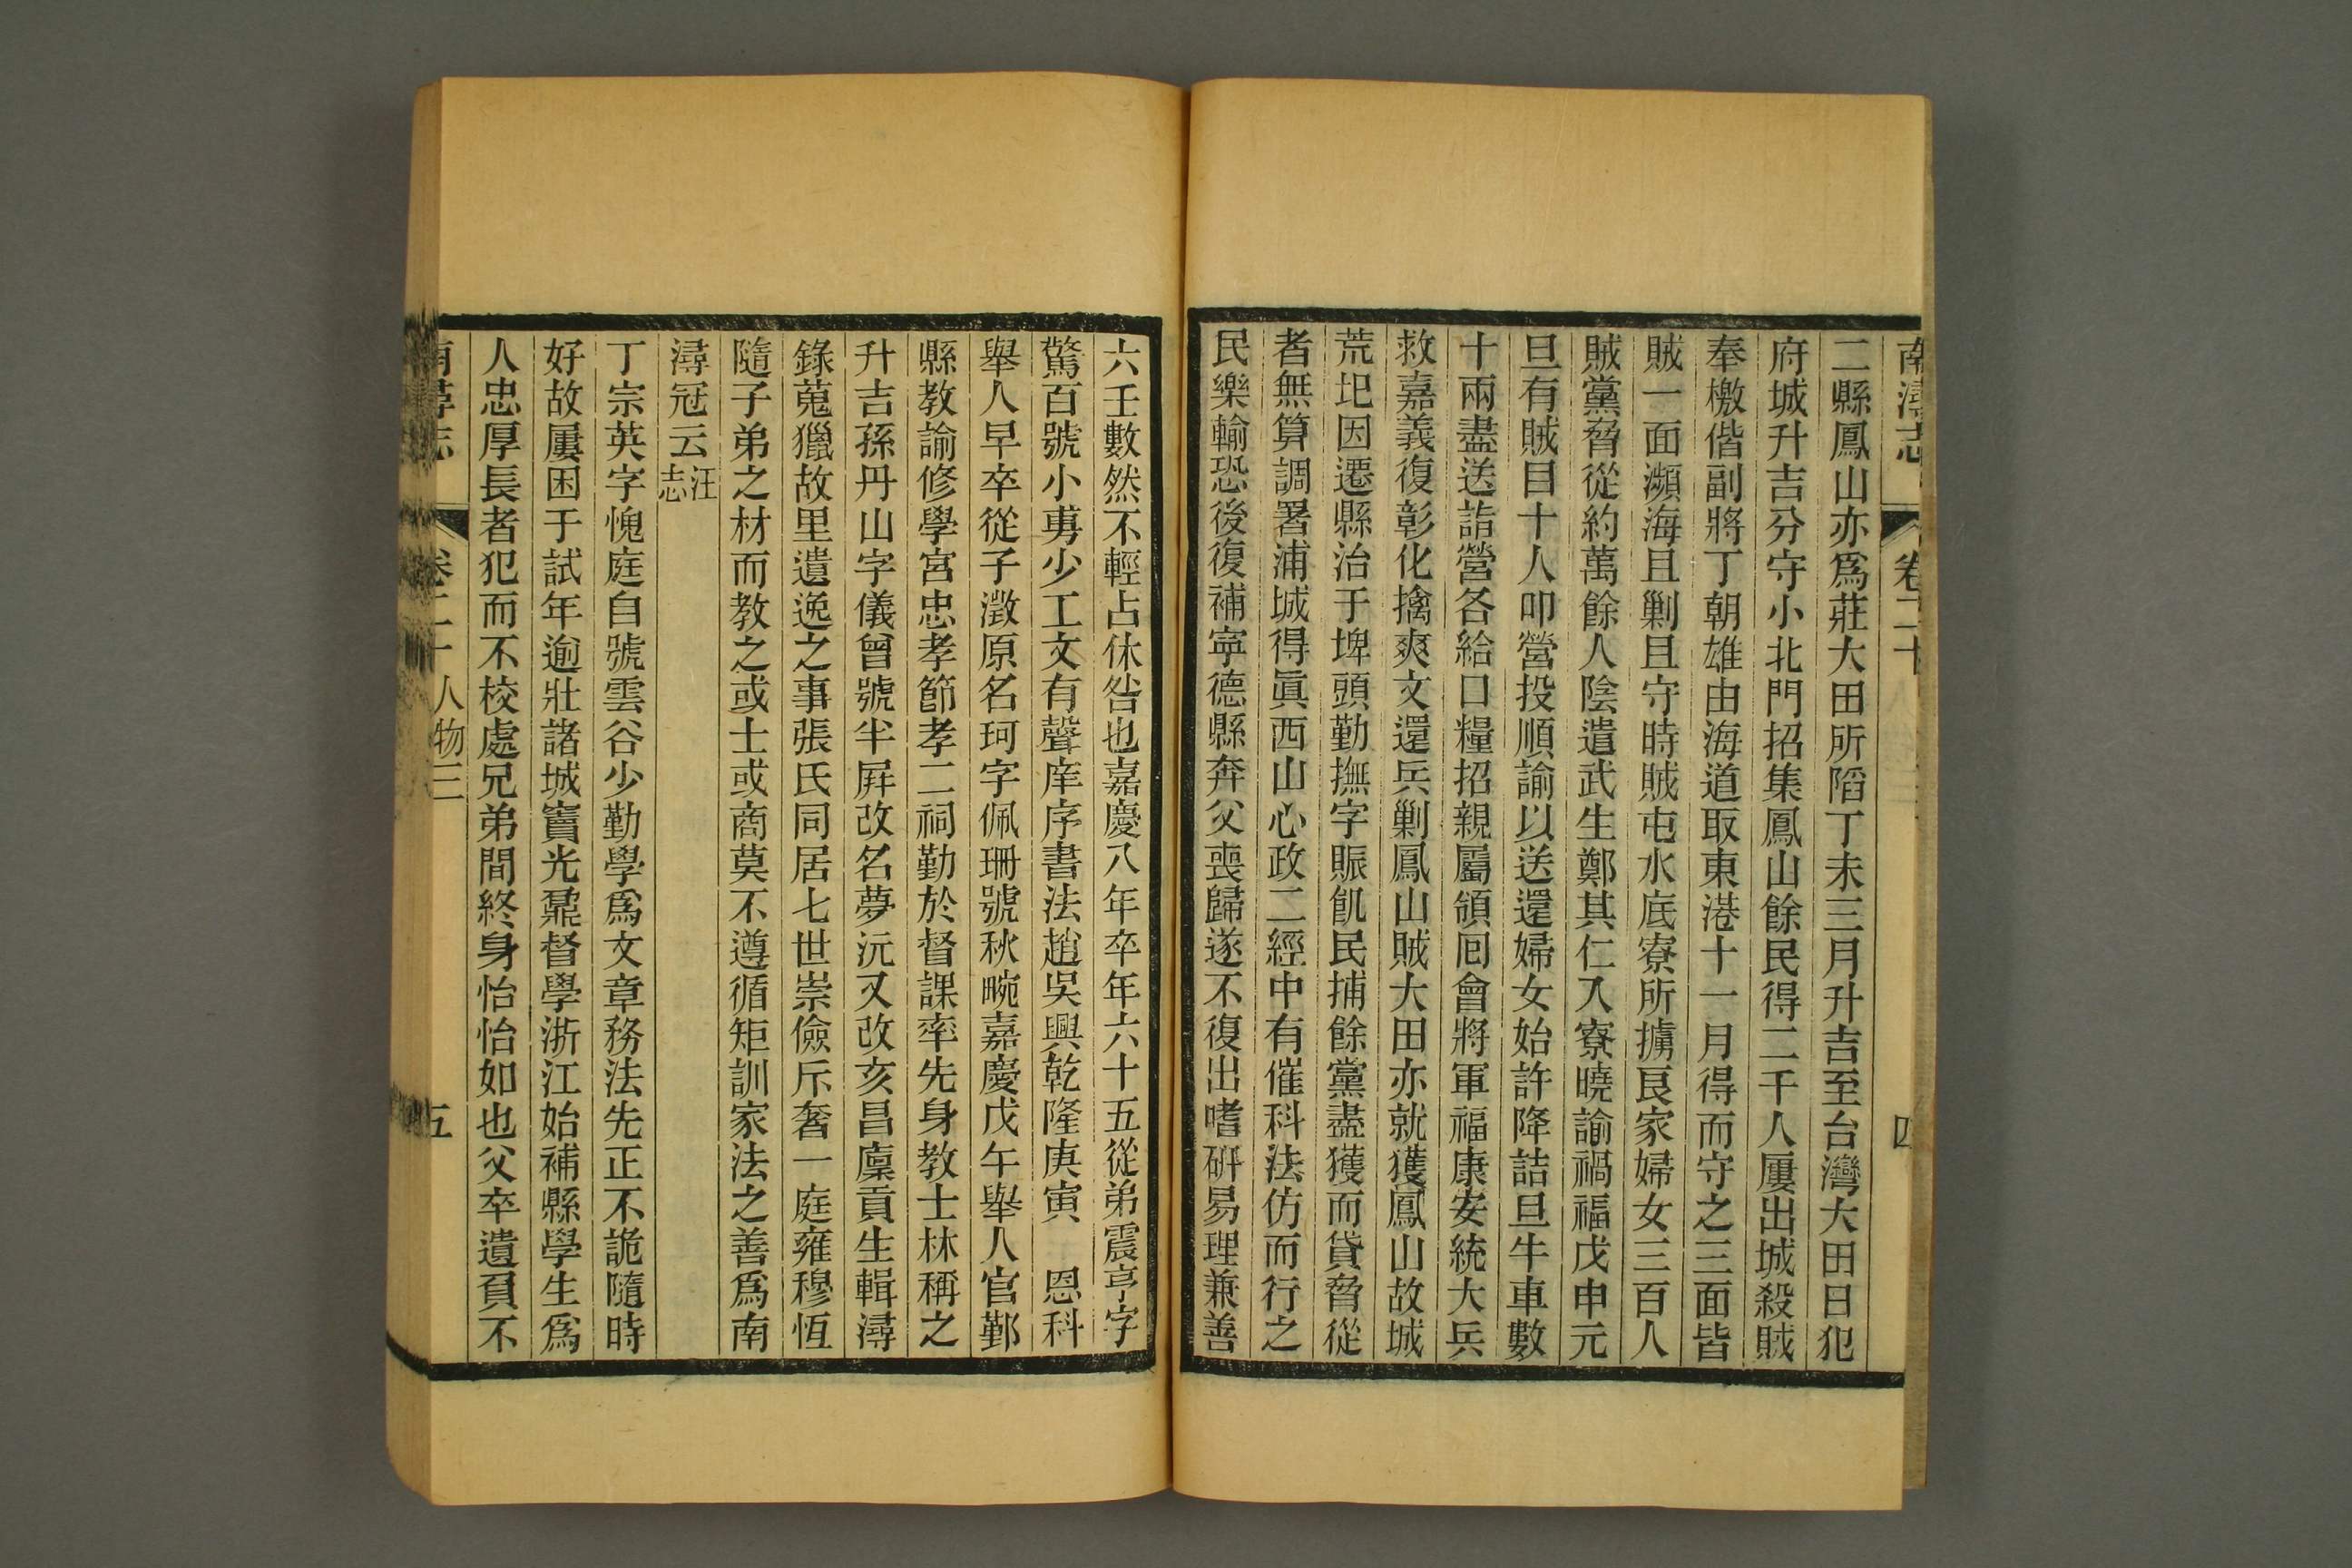 南潯志 卷二十 四
二縣鳳山亦爲莊大田所陷丁未三月升吉至台灣大田日犯
府城升吉分守小北門招集鳳山餘民得二千人屢出城殺賊
奉檄偕副將丁朝雄由海道取東港十一月得而守之三面皆
賊一面瀕海且剿且守時賊屯水底寮所擄良家婦女三百人
賊黨脅從約萬餘人陰遣武生鄭其仁入寮曉諭禍福戊申元
旦有賊目十人叩營投順諭以送還婦女始許降詰旦牛車數
十兩盡送詣營各給口糧招親屬領囘會將軍福康安統大兵
救嘉義復彰化擒爽文還兵剿鳳山賊大田亦就獲鳳山故城
荒圮因遷縣治于埤頭勤撫字賑飢民捕餘黨盡獲而貸脅從
者無算調署浦城得眞西山心政二經中有催科法仿而行之
民樂輸恐後復補寧德縣奔父喪歸遂不復出嗜研易理兼善
六壬數然不輕占休咎也嘉慶八年卒年六十五從弟震亨字
驚百號小勇少工文有聲庠序書法趙吳興乾隆庚寅 恩科
舉人早卒從子澂原名珂字佩珊號秋畹嘉慶戊午舉人官鄞
縣教諭修學宮忠孝節孝二祠勤於督課率先身教士林稱之
升吉孫丹山字儀曾號半屏改名夢沅又改亥昌廩貢生輯潯
錄蒐獵故里遺逸之事張氏同居七世崇儉斥奢一庭雍穆恆
隨子弟之材而教之或士或商莫不遵循矩訓家法之善爲南
潯冠云 汪志
丁宗英字愧庭自號雲谷少勤學爲文章務法先正不詭隨時
好故屢困于試年逾壯諸城竇光鼐督學浙江始補縣學生爲
人忠厚長者犯而不校處兄弟間終身怡怡如也父卒遺負不
南潯志 卷二十 人物三 五